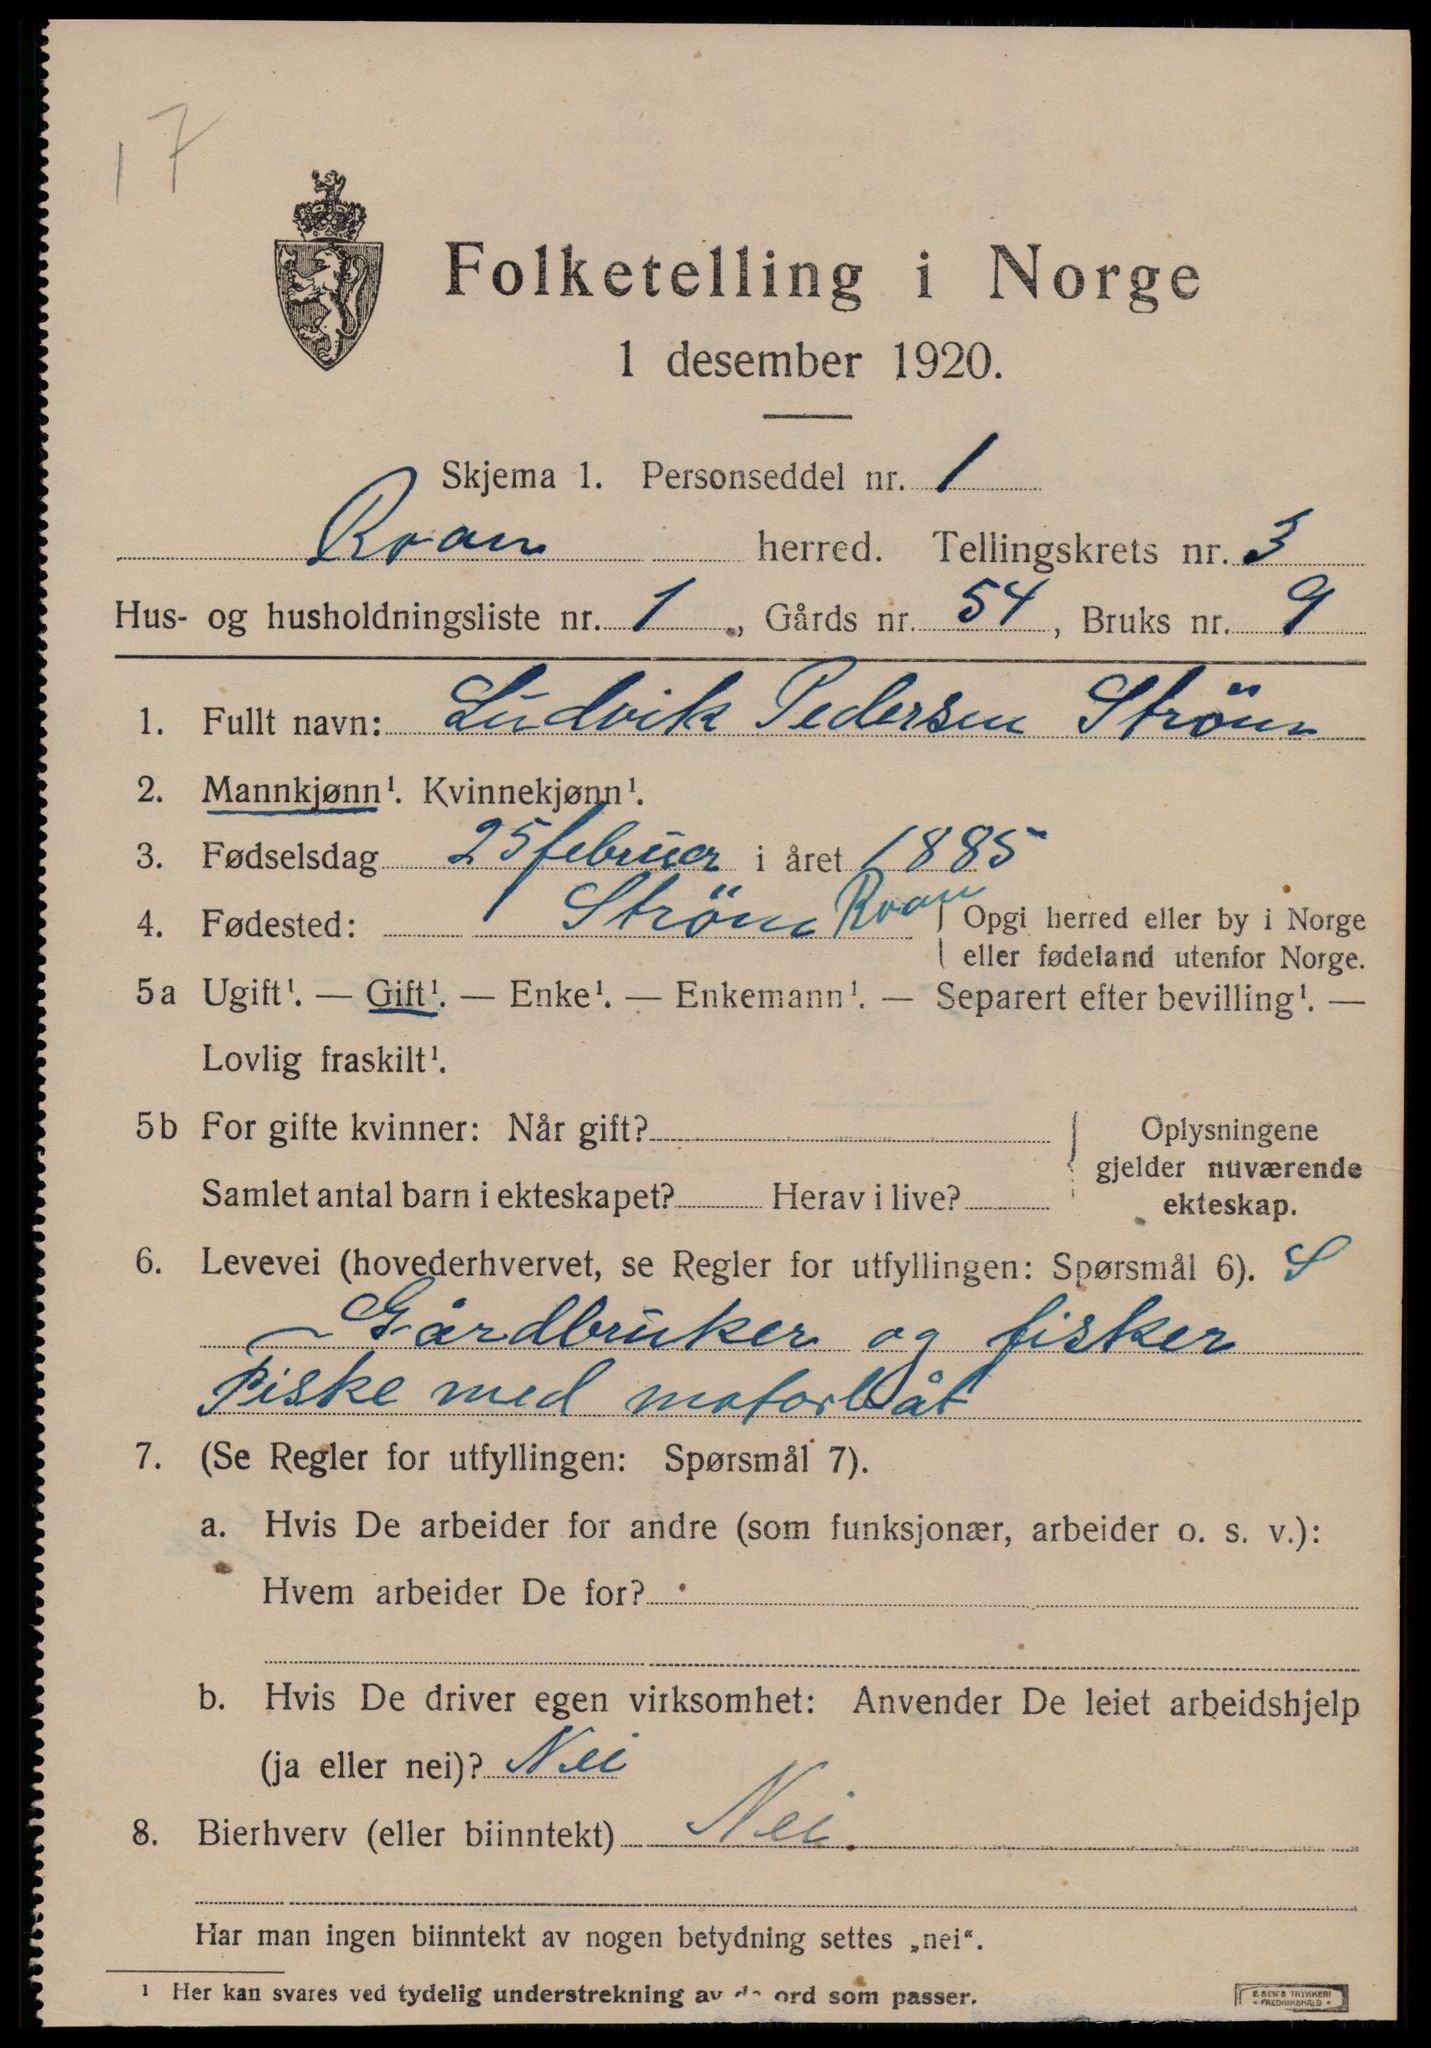 17
Folketelling i Norge
1 desember 1920.
Skjema 1. Personseddel nr. 1
Roan herred. Tellingskrets nr. 3
Hus- og husholdningsliste nr. 1, Gårds nr. 54, Bruks nr. 9
1. Fullt navn: Ludvik Pedersen Ström
2. Mannkjønn¹. Kvinnekjønn¹.
3. Fødselsdag 25 februar i året 1885
4. Fødested: Ström Roan { Opgi herred eller by i Norge
eller fødeland utenfor Norge.
5a Ugift¹. — Gift¹. — Enke¹. — Enkemann¹. — Separert efter bevilling¹. —
Lovlig fraskilt¹.
5b For gifte kvinner: Når gift?
Samlet antal barn i ekteskapet? Herav i live?
Oplysningene
gjelder nuværende
ekteskap.
6. Levevei (hovederhvervet, se Regler for utfyllingen: Spørsmål 6). S
Gårdbruker og fisker
Fiske med motorbåt
7. (Se Regler for utfyllingen: Spørsmål 7).
a. Hvis De arbeider for andre (som funksjonær, arbeider o. s. v.):
Hvem arbeider De for?
b. Hvis De driver egen virksomhet: Anvender De leiet arbeidshjelp
(ja eller nei)? Nei
8. Bierhverv (eller biinntekt) Nei.
Har man ingen biinntekt av nogen betydning settes „nei“.
¹ Her kan svares ved tydelig understrekning av de ord som passer.
E. SEM'S TRYKKERI
FREDRIKSHALD